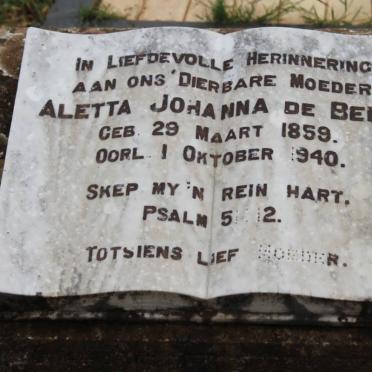 IN LIEFDEVOLLE HERINNERING
AAN ONS DIERBARE MOEDER
ALETTA JOHANNA DE
GEB. 29 MAART 1859.
OORL. 1 OKTOBER 1940.
SKEP MY 'N REIN HART.
PSALM 51:12.
TOTSIENS LIEF MOEDER.